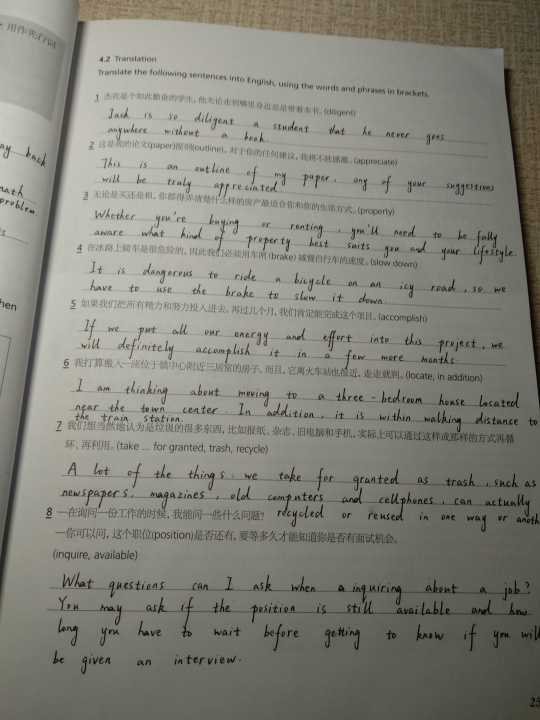 用作先行词
4.2 Translation
Translate the following sentences into English, using the words and phrases in brackets.
1 杰克是个如此勤奋的学生,他无论走到哪里身边总是带着本书。(diligent)
Jack is so diligent a student that he never goes
anywhere without a book.
2 这是我的论文(paper)提纲(outline)。对于你的任何建议,我将不胜感激。(appreciate)
This is an outline of my paper, any of your suggestions
will be truly appreciated.
3 无论是买还是租,你都得弄清楚什么样的房产最适合你和你的生活方式。(property)
Whether you're buying or renting, you'll need to be fully
aware what kind of property best suits you and your lifestyle.
4 在冰路上骑车是很危险的,因此我们必须用车闸(brake)减慢自行车的速度。(slow down)
It is dangerous to ride a bicycle on an icy road, so we
have to use the brake to slow it down.
5 如果我们把所有精力和努力投入进去,再过几个月,我们肯定能完成这个项目。(accomplish)
If we put all our energy and effort into this project, we
will definitely accomplish it in a few more months
6 我打算搬入一座位于镇中心附近三居室的房子。而且,它离火车站也很近,走走就到。(locate, in addition)
I am thinking about moving to a three-bedroom house located
near the town center. In addition, it is within walking distance to
the train station.
7 我们想当然地认为是垃圾的很多东西,比如报纸、杂志、旧电脑和手机,实际上可以通过这样或那样的方式再循
环、再利用。(take ... for granted, trash, recycle)
A lot of the things we take for granted as trash, such as
newspapers, magazines, old computers and cellphones, can actually
recycled or reused in one way or anoth
8 —在询问一份工作的时候,我能问一些什么问题?
—你可以问,这个职位(position)是否还有,要等多久才能知道你是否有面试机会。
(inquire, available)
What questions can I ask when inquiring about a job?
You may ask if the position is still available and how
long you have to wait before getting to know if you will
be given an interview.
ay back
math
problem
hen